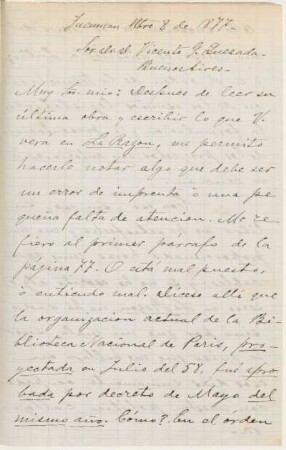 Tucuman Nbre. 8 de 1877.
Sor. dr. d. Vicente G. Quesada.
Buenos Aires.
Muy Sor. mio: Despues de leer su
última obra y escribir lo que V.
vera en La Razon, me permito
hacerle notar algo que debe ser
un error de imprenta ó una pe
queña falta de atencion. Me re
fiero al primer párrafo de la
página 77. O está mal puesto,
ó entiendo mal. Dícese alli que
la organizacion actual de la Bi-
blioteca Nacional de Paris, pro-
yectada en Julio del 58. fué apro
bada por decreto de Mayo del
mismo año. Cómo? En el órden